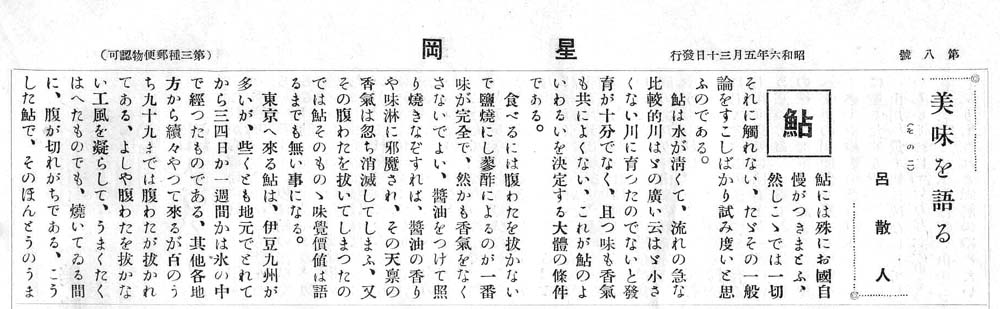 第八號
昭和六年五月三十日發行
星岡
(第三種郵便物認可)
美味を語る
(その二)
呂散人
鮎
鮎には殊にお國自
慢がつきまとふ、
然しこゝでは一切
それに觸れない、たゞその一般
論をすこしばかり試み度いと思
ふのである。
鮎は水が清くて、流れの急な
比較的川はゞの廣い云はゞ小さ
くない川に育つたのでないと發
育が十分でなく、且つ味も香氣
も共によくない、これが鮎のよ
いわるいを決定する大體の條件
である。
食べるには腹わたを拔かない
で鹽燒にし蓼酢によるのが一番
味が完全で、然かも香氣をなく
さないでよい、醬油をつけて照
り燒きなぞすれば、醬油の香り
や味淋に邪魔され、その天禀の
香氣は忽ち消滅してしまふ、又
その腹わたを拔いてしまつたの
では鮎そのものゝ味覺價値は語
るまでも無い事になる。
東京へ來る鮎は、伊豆九州が
多いが、些くとも地元でとれて
から三四日か一週間かは氷の中
で經つたものである、其他各地
方から續々やつて來るが百のう
ち九十九までは腹わたが拔かれ
てある、よしや腹わたを拔かな
い工風を凝らして、うまくたく
はへたものでも、燒いてゐる間
に、腹が切れがちである、こう
した鮎で、そのほんとうのうま